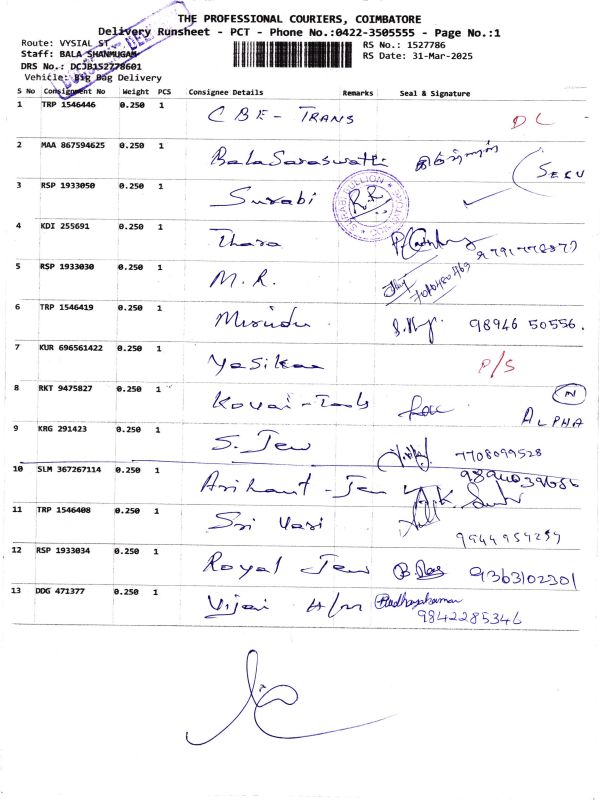 THE PROFESSIONAL COURIERS, COIMBATORE
Delivery Runsheet - PCT - Phone No.:0422-3505555 - Page No.:1
Route: VYSIAL ST RS No.: 1527786
Staff: BALA SHANMUGAM RS Date: 31-Mar-2025
DRS No.: DCJB152778601
Vehicle: Big Bag Delivery
S No Consignment No Weight PCS Consignee Details Remarks Seal & Signature
1 TRP 1546446 0.250 1 CBE - TRANS DL
2 MAA 867594625 0.250 1 BalaSaraswathi
3 RSP 1933050 0.250 1 Surabi R.R
4 KDI 255691 0.250 1 Thara
5 RSP 1933030 0.250 1 M.R.
6 TRP 1546419 0.250 1 98946 50556.
7 KUR 696561422 0.250 1 Yasikaa P/S
8 RKT 9475827 0.250 1 Kovai - Tools N
ALPHA
9 KRG 291423 0.250 1 S. Jew 7708099528
10 SLM 367267114 0.250 1 Arihant - Jew
11 TRP 1546408 0.250 1 Sri Vari
12 RSP 1933034 0.250 1 Royal Jew 9363102301
13 DDG 471377 0.250 1 Vijai H/M
9842285346